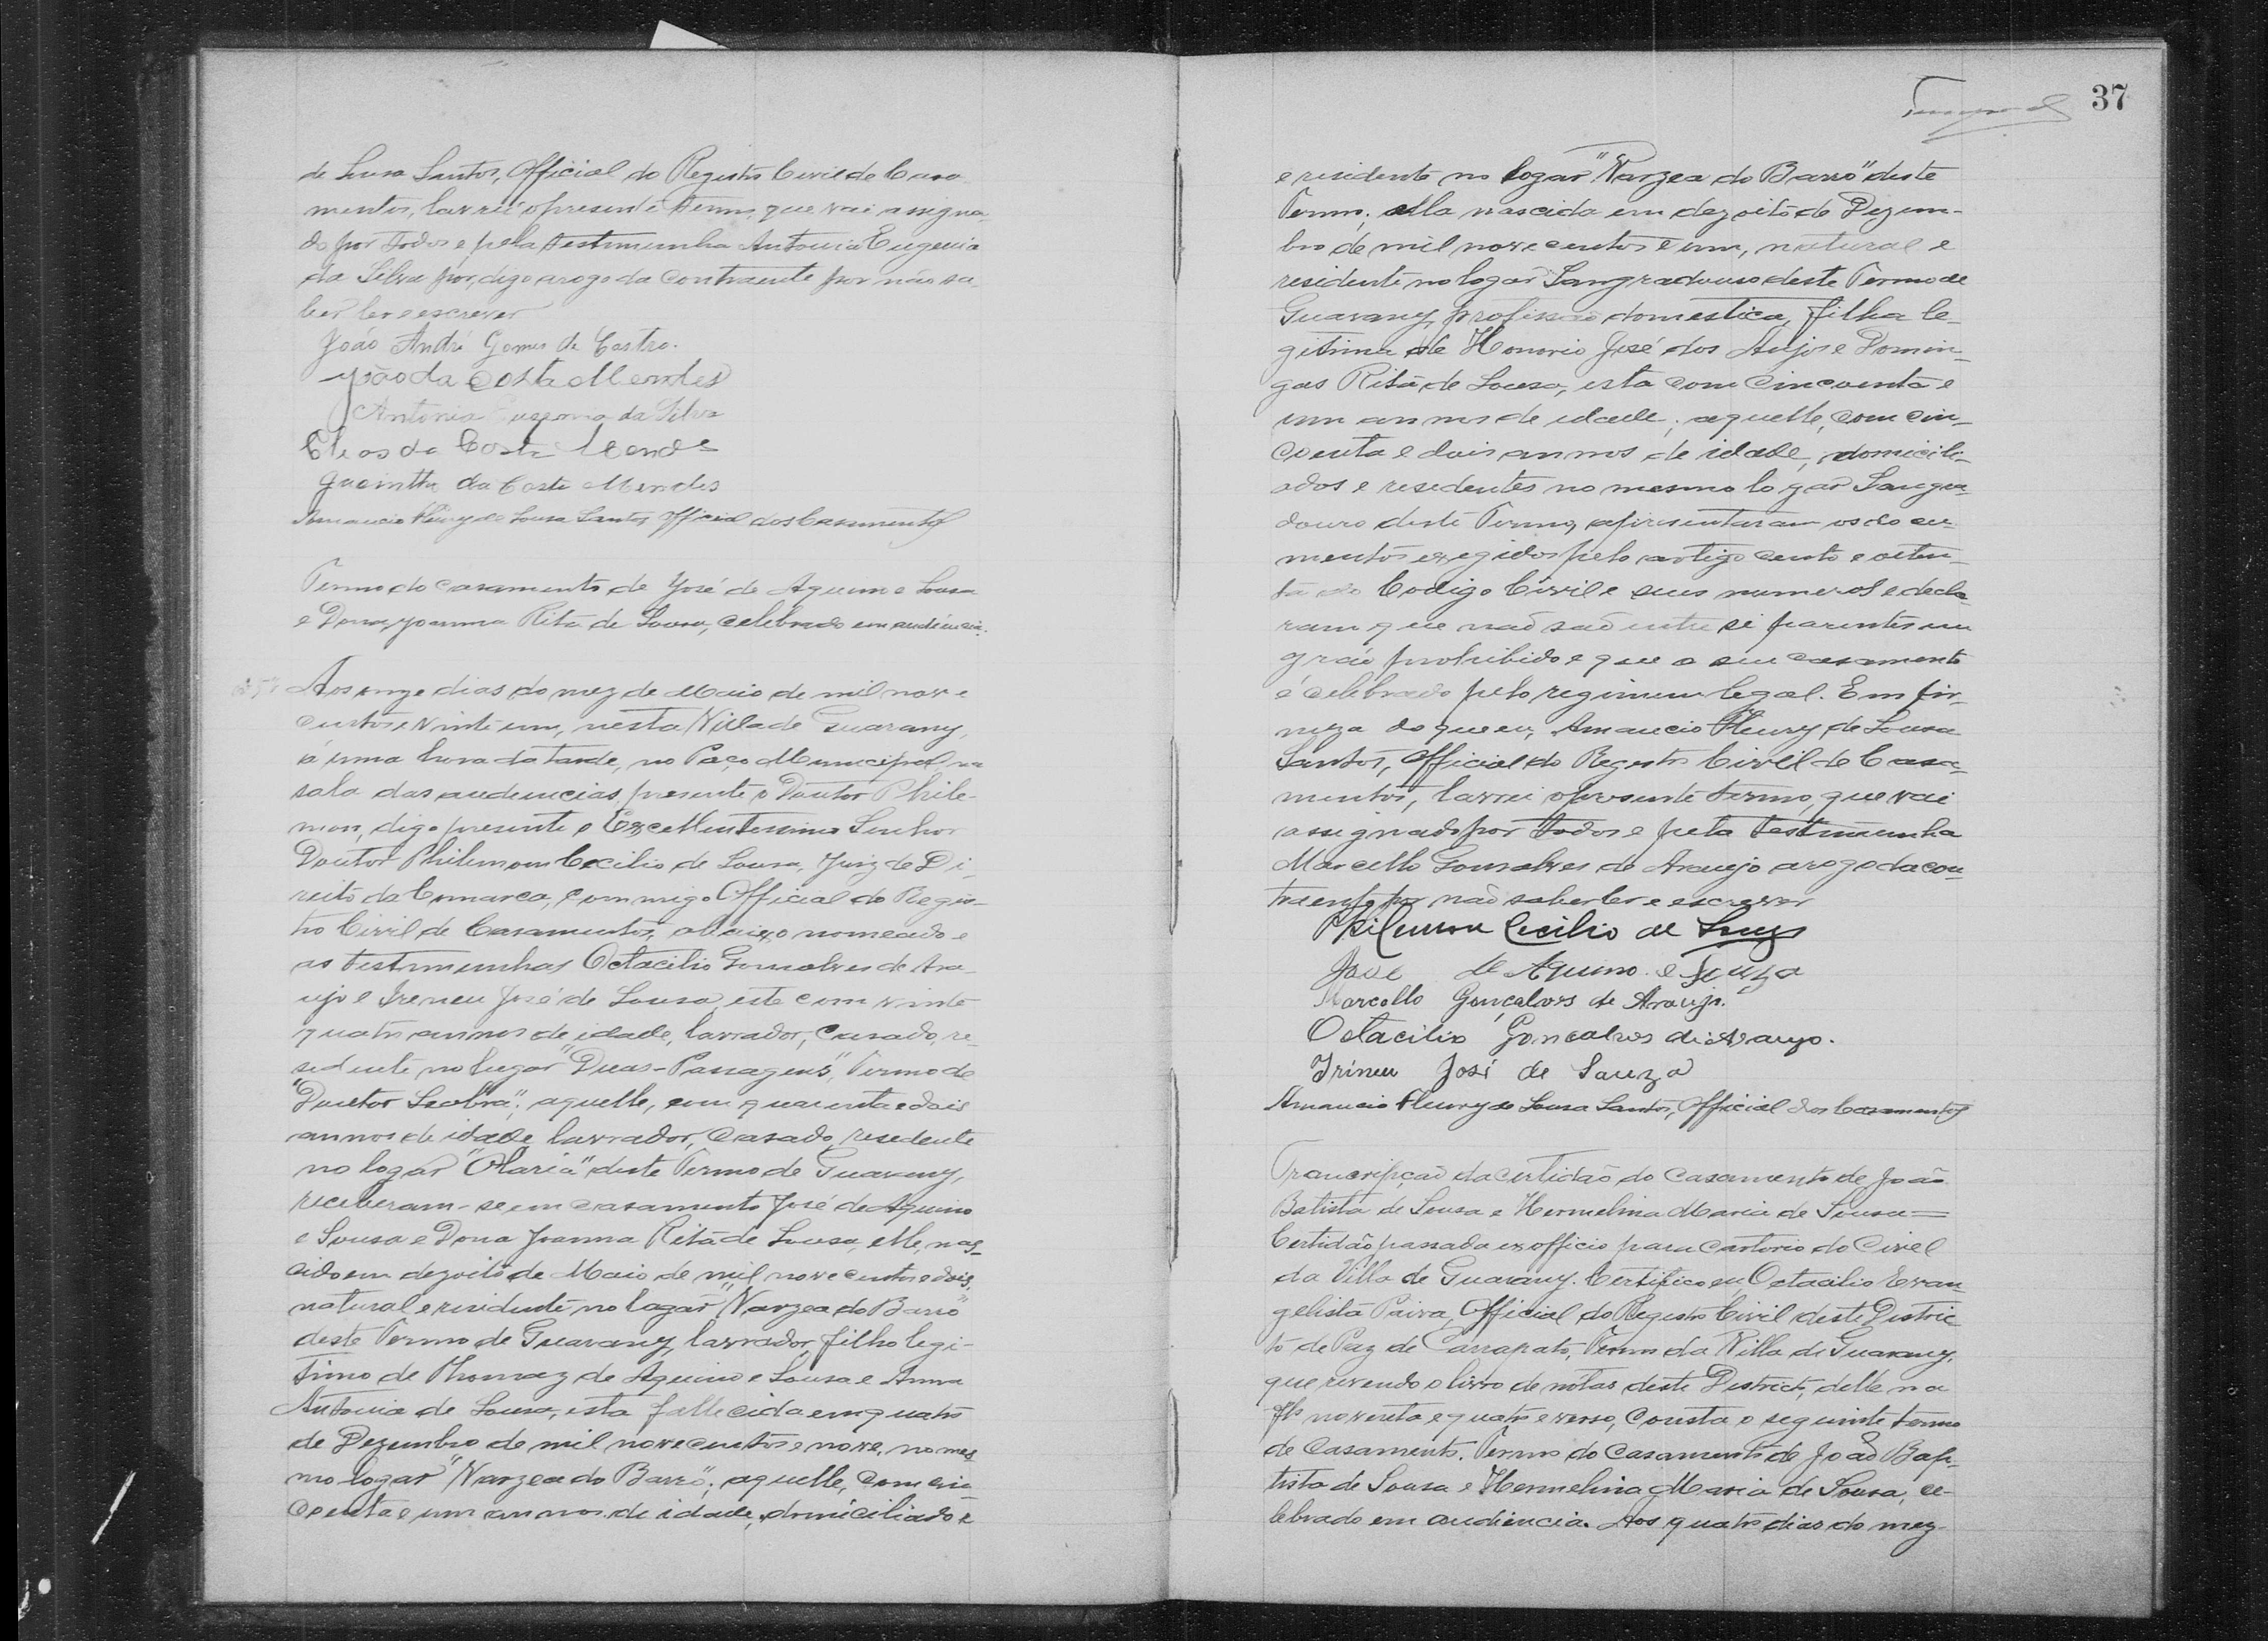 de Sousa Santos, Official do Registro Civil de Casa
mentos, lavrei o presente termo, que vai assigna
do por todos e pela testimunha Antonia Eugenia
da Silva por, digo arogo da contraente por não sa
ber ler e escrever
João André Gomes de Castro.
João da Costa Mendes
Antonia Eugenia da Silva
da Costa Mendes
Jacintho da Costa Mendes
Amancio Fleury de Sousa Santos, Official dos Casamentos
Termo do casamento de José de Aquino e Sousa
e Dona Joanna Rita de Sousa, celebrado em audiencia.
Aos onze dias do mez de Maio de mil nove
centos e vinte um, nesta Villa de Guarany,
á uma hora da tarde, no Paço Municipal na
sala das audiencias, presente o Doutor Phile-
mon, digo presente o Excellentissimo Senhor
Doutor Philemon Cecilio de Sousa, Juiz de Di-
reito da Comarca, commigo Official do Regis-
tro Civil de Casamentos, abaixo nomeado e
as testimunhas Octacilio Gonsalves de Ara-
ujo e Ireneu José de Sousa, este com vinte
quatro annos de idade, lavrador, casado, re-
sidente no lugar "Duas-Passagens", Termo de
"Doutor Seabra"; aquelle, com quarenta e dois
annos de idade lavrador, casado, resedente
no logar "Olaria" deste Termo de Guarany,
receberam-se em casamento José de Aquino
e Sousa e Dona Joanna Rita de Sousa, elle, nas-
cido em dezoito de Maio de mil novecentos e dois,
natural e residente no lagar "Varzea do Barro"
deste Termo de Guarany, lavrador, filho legi-
timo de Thomaz de Aquino e Sousa e Anna
Antonia de Sousa, esta fallecida em quatro
de Dezembro de mil novecentos e nove, no mes
mo logar "Varzea do Barro"; aquelle, com cin
coenta e um annos de idade, domiciliado e
37
e residente no logar "Varzea do Barro" deste
Termo; ella nascida em dezoito de Dezem-
bro de mil novecentos e um, natural e
residente no logar Sangradouro deste Termo de
Guarany, profissão domestica, filha le-
gitima de Honorio José dos Anjos e Domin-
gas Rita de Sousa, esta com cincoenta e
um annos de idade; aquelle, com cin-
coenta e dois annos de idade, domicili-
ados e resedentes no mesmo logar Sangra-
douro deste Termo, apresentaram os docu-
mentos exegidos pelo artigo cento e oiten-
ta do Codigo Civil e seus numeros e decla-
ram que não são entre si parentes em
gráo prohibido e que o seu casamento
é celebrado pelo regimem legal. Em fir-
meza do que eu, Amancio Fleury de Sousa
Santos, Official do Registro Civil de Casa-
mentos, lavrei o presente termo, que vai
assignado por todos e pela testimunha
Marcello Gonsalves de Araujo arogo da con-
traente por não saber ler e escrever
Philemon Cecilio de Souza
José de Aquino e Souza
Marcello Gonçalves de Araujo.
Octacilio Goncalves de Araujo.
Irineu José de Souza
Amancio Fleury de Sousa Santos, Official dos Casamentos
Transcripção da certidão do casamento de João
Batista de Sousa e Hermelina Maria de Sousa=
Certidão passada ex officio para cartorio do Civel
da Villa de Guarany. Certifico eu, Octacilio Evan-
gelista Paiva, Official do Registro Civil deste Distric-
to de Paz de Carrapato, Termo da Villa de Guarany,
que revendo o livro de notas deste Districto, delle na
fls noventa e quatro e verso, consta o seguinte termo
de casamento. Termo do casamento de João Bap-
tista de Sousa e Hermelina Maria de Sousa, ce-
lebrado em audiencia. Aos quatro dias do mez